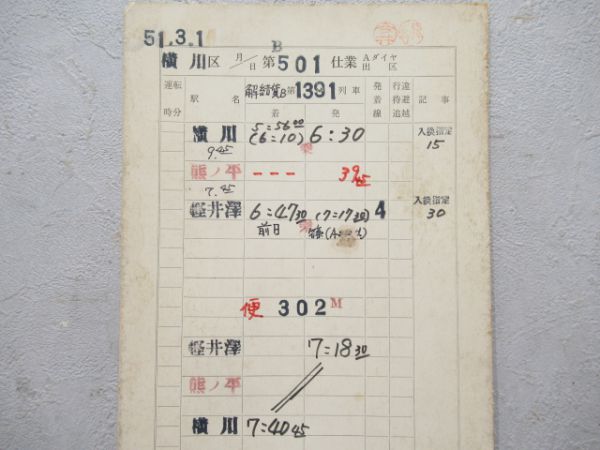 51.3.1
B
横川区 月/日 第501仕業 Aダイヤ出区
運転時分 駅名 解結貨B第1391列車 着 発 発着線 行違待避追越 記事
横川 5=56 00 (6=10) 6:30 入換指定 15
9.45
熊ノ平 --- 39 45
7.45
軽井澤 6=47 30 (7=17 30) 4 入換指定 30
前日
便 302M
軽井澤 7=18 30
熊ノ平
横川 7=40 45